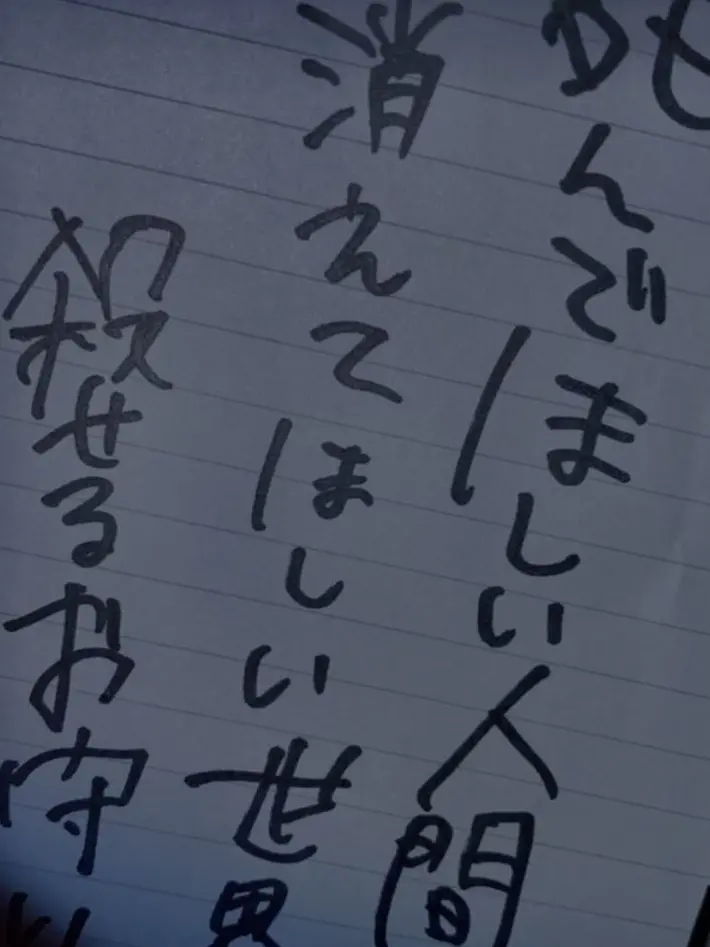 死んでほしい人間
消えてほしい世界
殺せるお守り